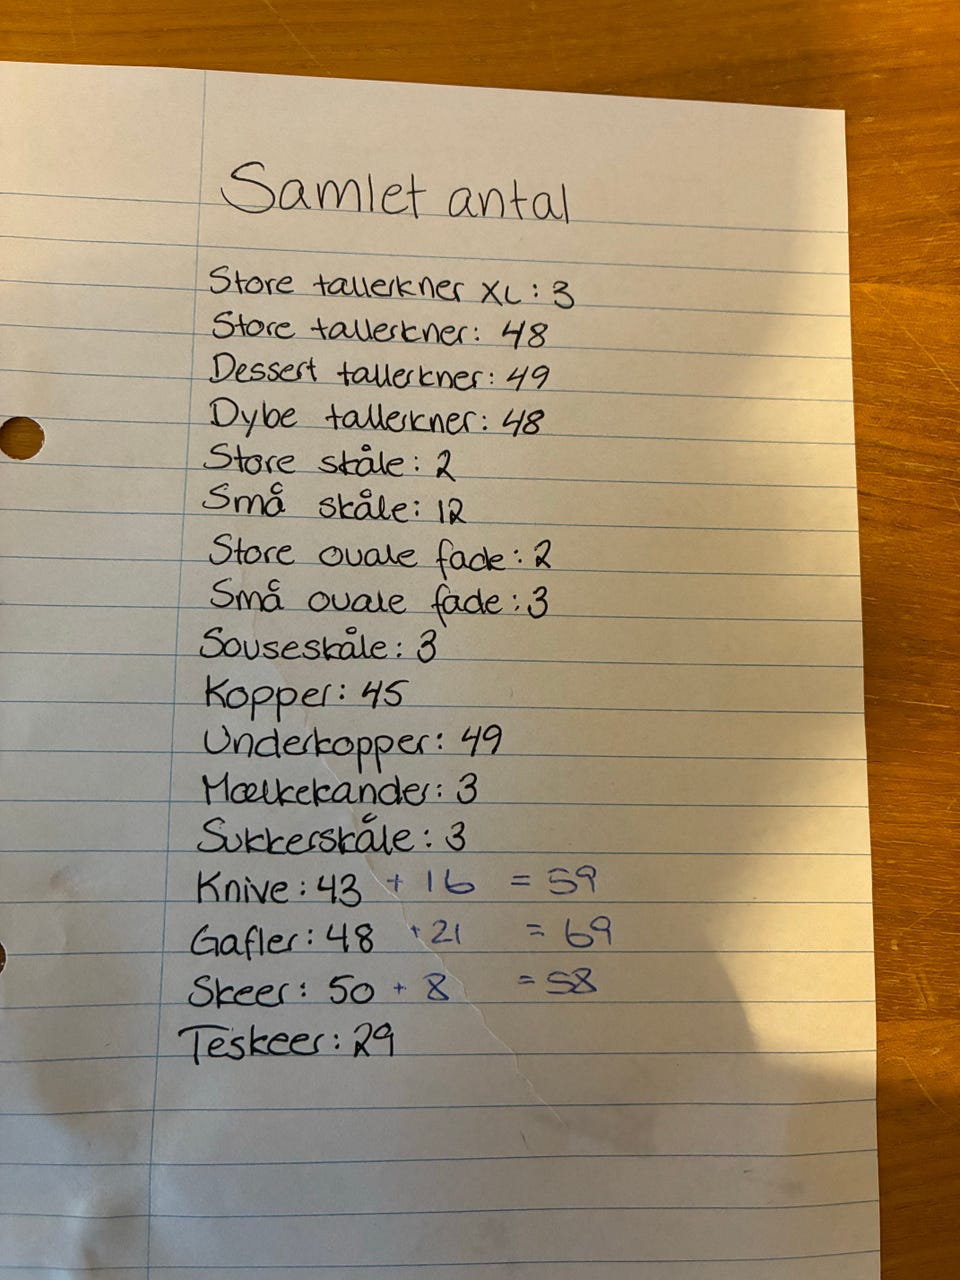 Samlet antal
Store tallerkner XL: 3
Store tallerkner: 48
Dessert tallerkner: 49
Dybe tallerkner: 48
Store skåle: 2
Små skåle: 12
Store ovale fade: 2
Små ovale fade: 3
Souseskåle: 3
Kopper: 45
Underkopper: 49
Mælkekander: 3
Sukkerskåle: 3
Knive: 43 + 16 = 59
Gafler: 48 + 21 = 69
Skeer: 50 + 8 = 58
Teskeer: 29